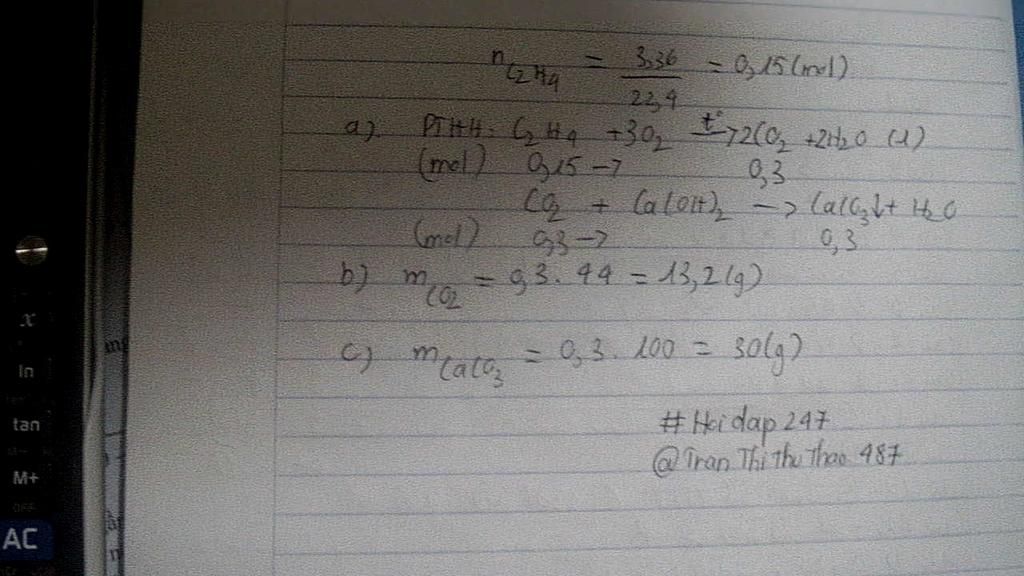 n C2H4 = 3,36 / 22,4 = 0,15 (mol)
a) PTHH: C2H4 + 3O2 t°→ 2CO2 + 2H2O (1)
(mol) 0,15 → 0,3
CO2 + Ca(OH)2 → CaCO3↓ + H2O
(mol) 0,3 → 0,3
b) mCO2 = 0,3 . 44 = 13,2 (g)
c) mCaCO3 = 0,3 . 100 = 30 (g)
# Hoidap 247
@Tran Thi thu Thao 487
x
ln
tan
M+
AC